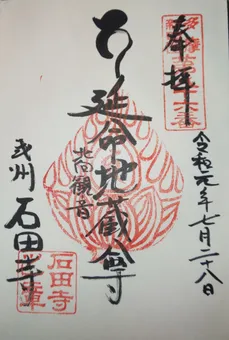 奉拝
令和元年七月二十八日
延命地蔵尊
北向観音
武州
石田寺
石田寺